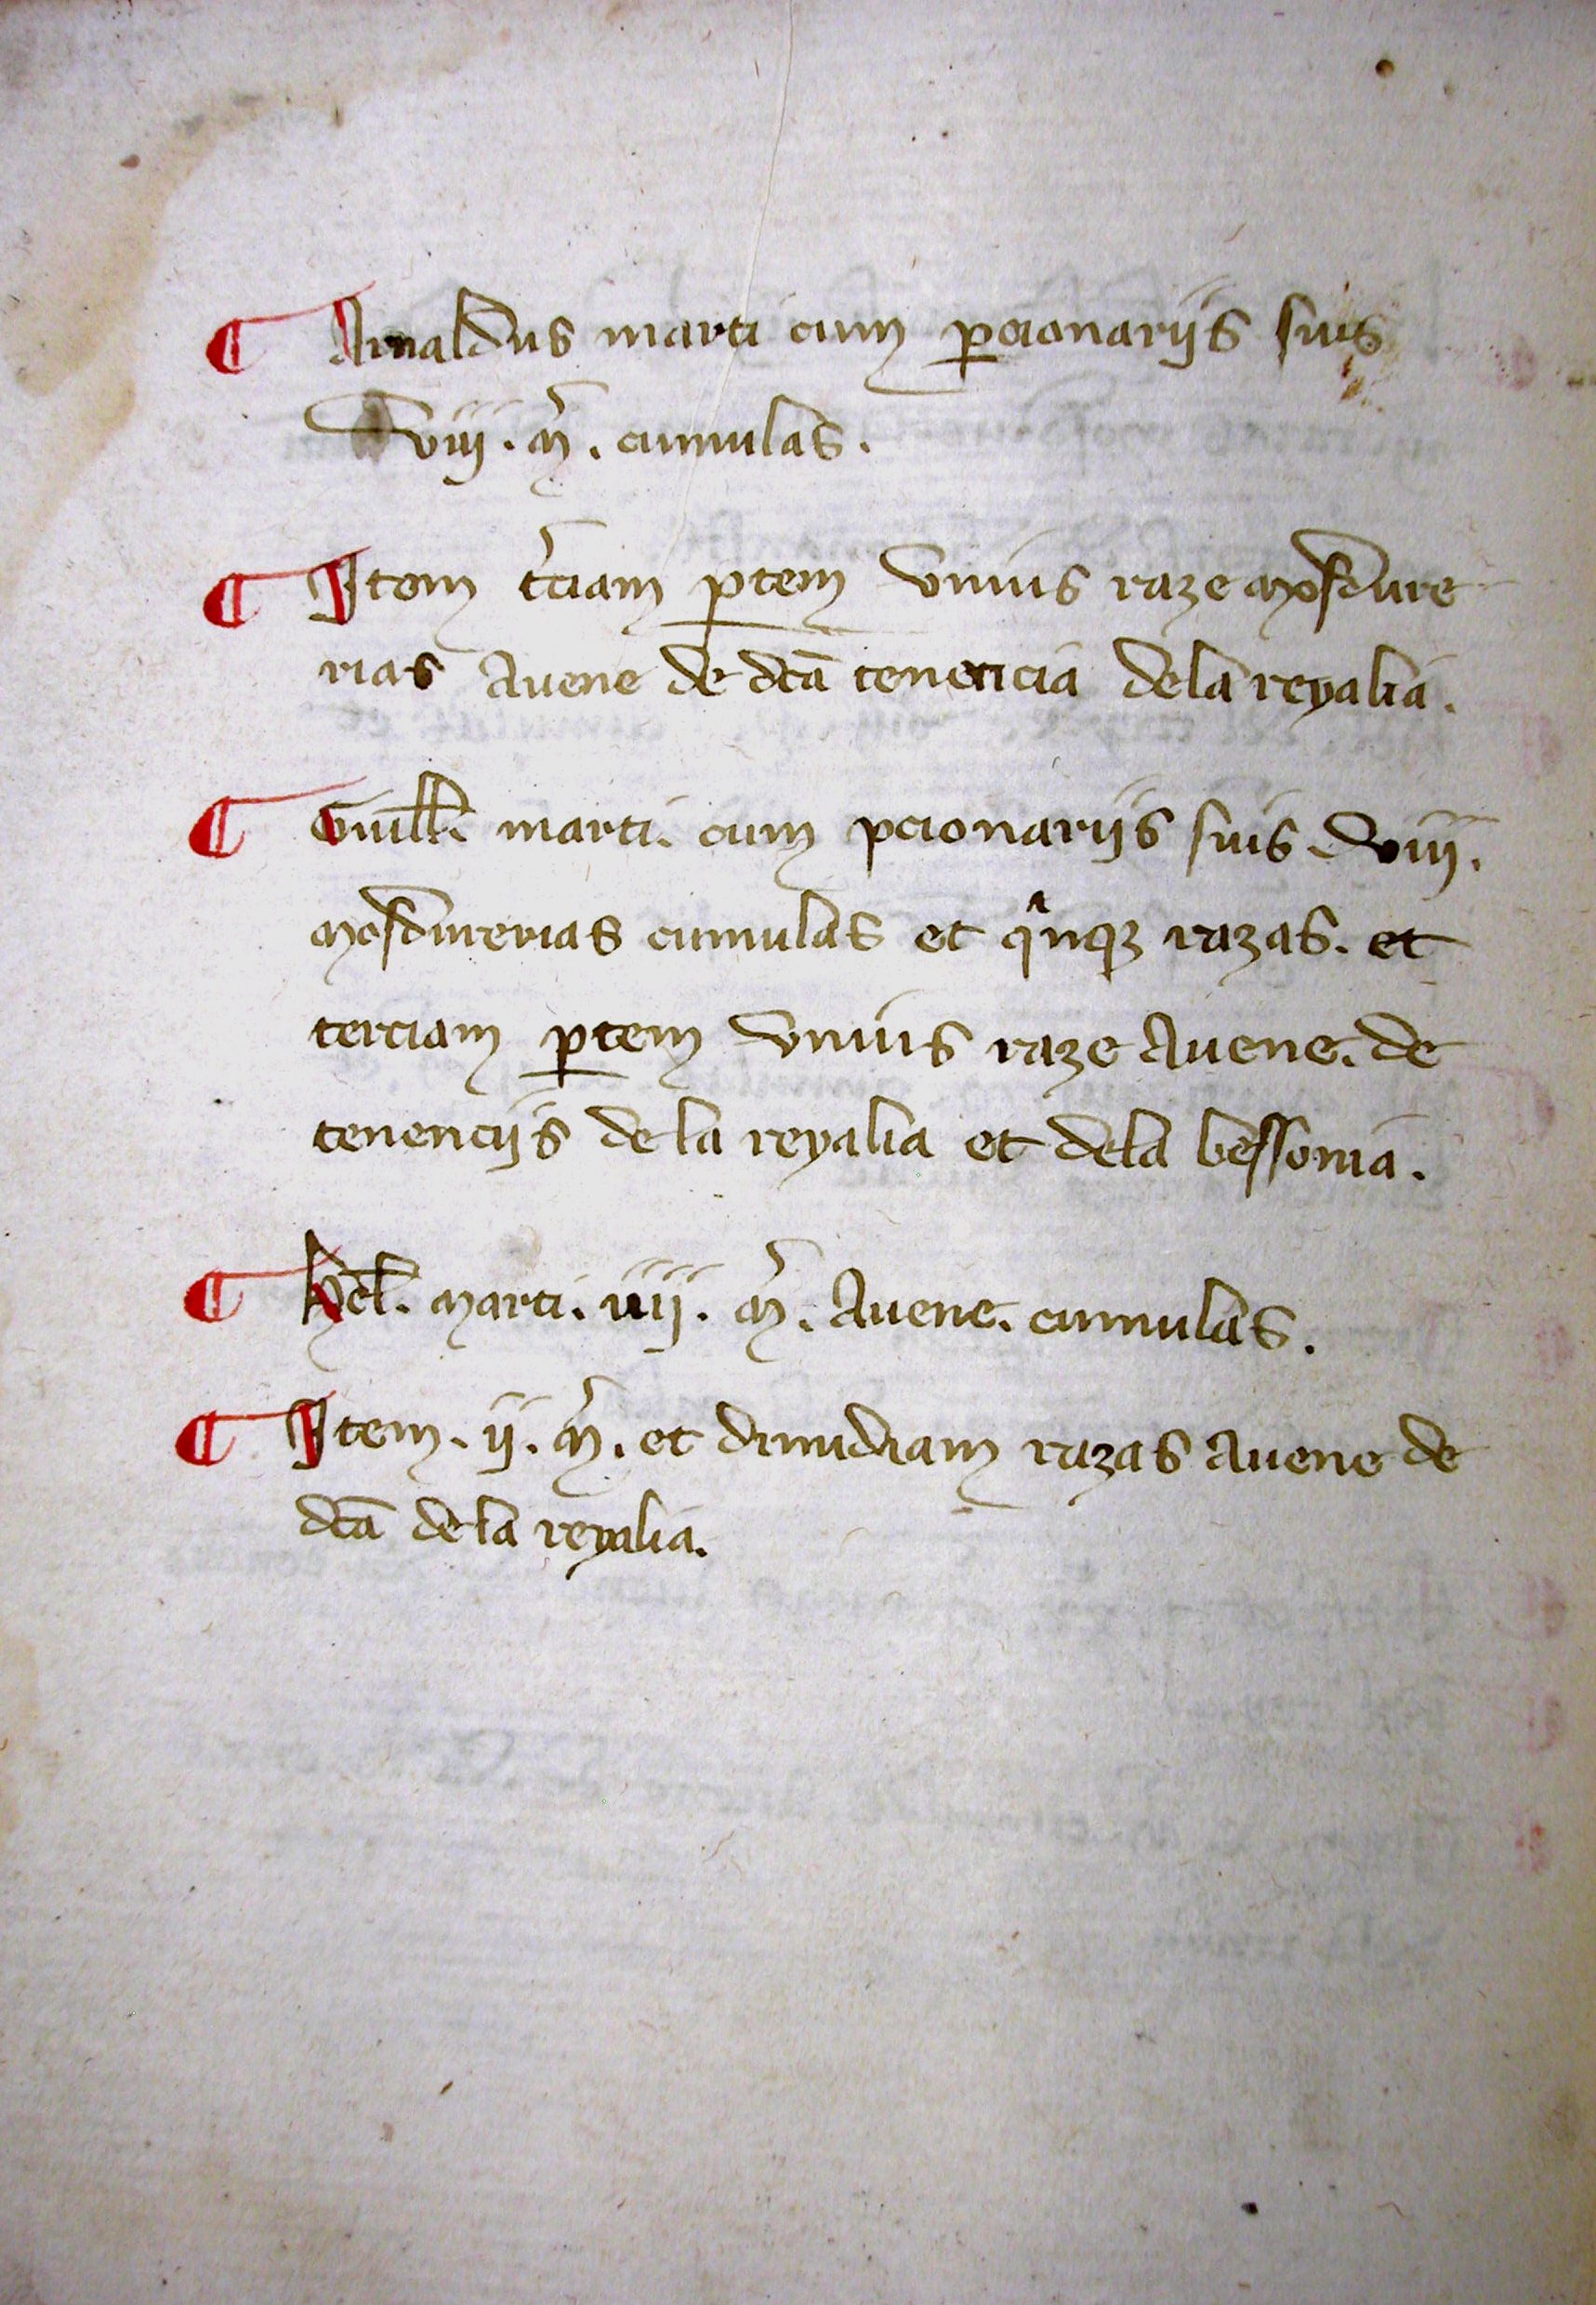 ¶ Arnaldus marti cum pcionariis suis
viii. m̃. cumulas.
¶ Item t̃ciam ptem unius raze mosdure
rias avene de dc̃a tenencia dela reyalia.
¶ Guill̃i marti. cum pcionariis suis. viii.
mosdurerias cumulas et qi̾nqꝫ razas. et
terciam ptem unius raze avene. de
tenenciis de la reyalia et dela bessonia.
¶ marti. iiii. m̃. avene. cumulas.
¶ Item. ii. m̃. et dimidiam razas avene de
dc̃a de la reyalia.